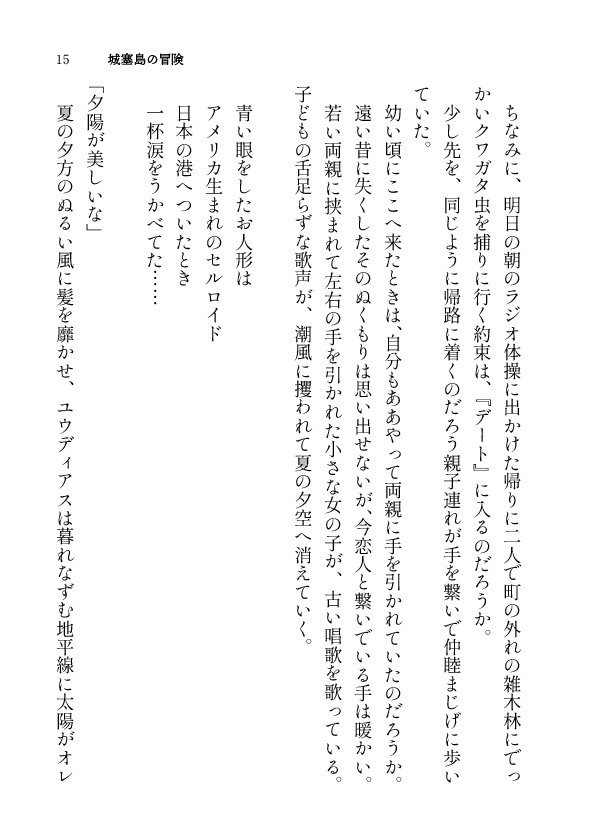 15 城塞島の冒険
ちなみに、明日の朝のラジオ体操に出かけた帰りに二人で町の外れの雑木林にでっ
かいクワガタ虫を捕りに行く約束は、『デート』に入るのだろうか。
少し先を、同じように帰路に着くのだろう親子連れが手を繋いで仲睦まじげに歩い
ていた。
幼い頃にここへ来たときは、自分もああやって両親に手を引かれていたのだろうか。
遠い昔に失くしたそのぬくもりは思い出せないが、今恋人と繋いでいる手は暖かい。
若い両親に挟まれて左右の手を引かれた小さな女の子が、古い唱歌を歌っている。
子どもの舌足らずな歌声が、潮風に攫われて夏の夕空へ消えていく。
青い眼をしたお人形は
アメリカ生まれのセルロイド
日本の港へついたとき
一杯涙をうかべてた……
「夕陽が美しいな」
夏の夕方のぬるい風に髪を靡かせ、ユウディアスは暮れなずむ地平線に太陽がオレ